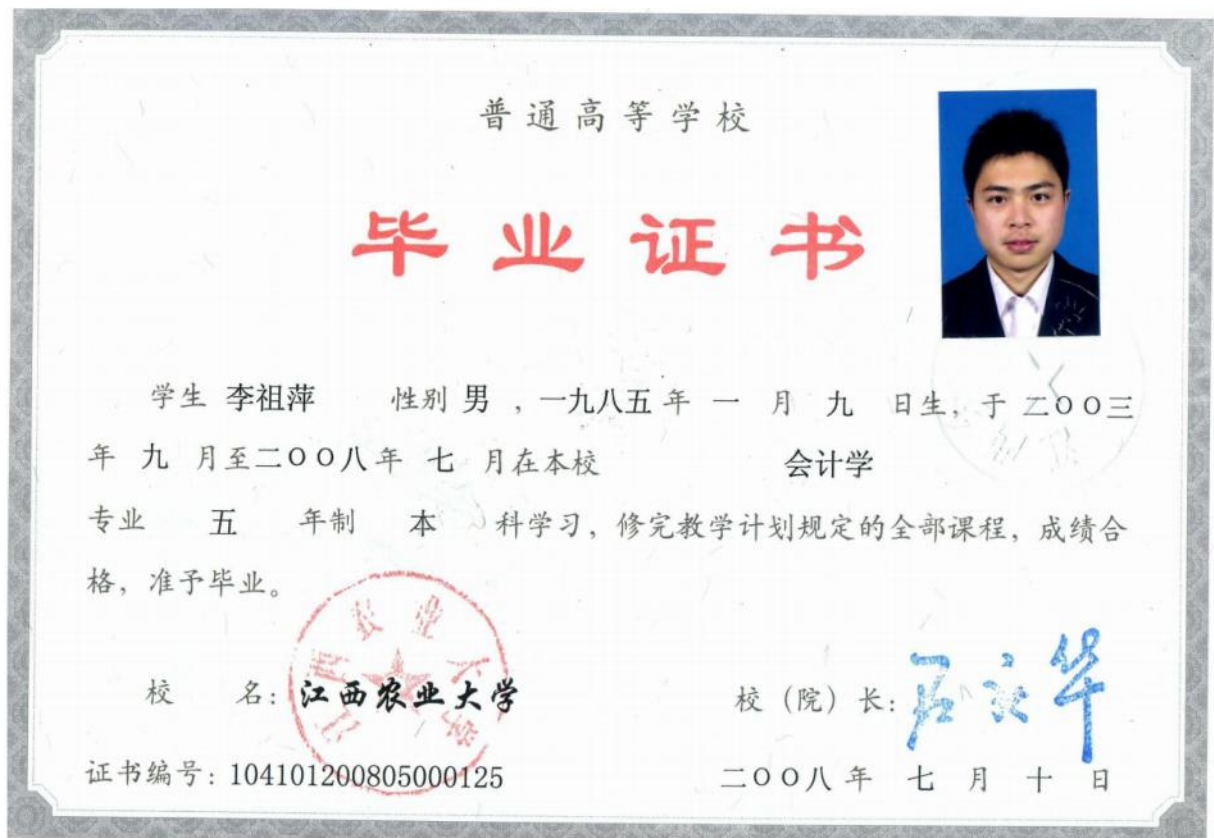 普通高等学校
毕业证书
学生 李祖萍 性别 男 ，一九八五 年 一 月 九 日生，于 二〇〇三
年 九 月至二〇〇八年 七 月在本校 会计学
专业 五 年制 本 科学习，修完教学计划规定的全部课程，成绩合
格，准予毕业。
江西农业大学
校 名：江西农业大学 校（院）长：
证书编号：104101200805000125 二〇〇八 年 七 月 十 日